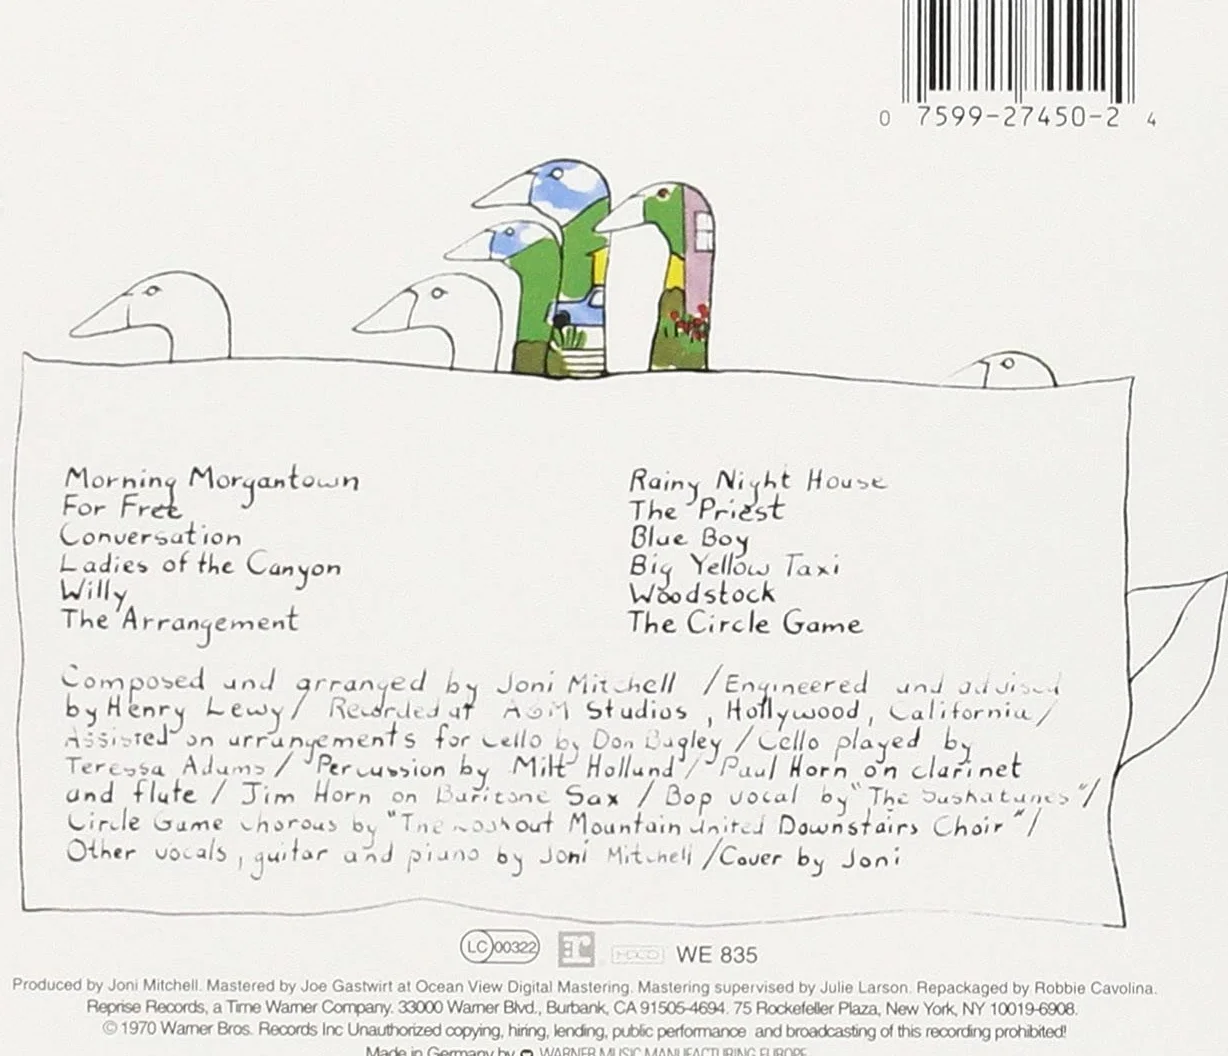 0 7599-27450-2 4
Morning Morgantown
For Free
Conversation
Ladies of the Canyon
Willy
The Arrangement
Rainy Night House
The Priest
Blue Boy
Big Yellow Taxi
Woodstock
The Circle Game
Composed and arranged by Joni Mitchell / Engineered and advised
by Henry Lewy / Recorded at A&M Studios, Hollywood, California /
Assisted on arrangements for cello by Don Bagley / Cello played by
Teressa Adams / Percussion by Milt Holland / Paul Horn on clarinet
and flute / Jim Horn on Baritone Sax / Bop vocal by "The Saskatunes" /
Circle Game chorous by "The Lookout Mountain United Downstairs Choir" /
Other vocals, guitar and piano by Joni Mitchell / Cover by Joni
LC 00322 r HDCD WE 835
Produced by Joni Mitchell. Mastered by Joe Gastwirt at Ocean View Digital Mastering. Mastering supervised by Julie Larson. Repackaged by Robbie Cavolina.
Reprise Records, a Time Warner Company. 33000 Warner Blvd., Burbank, CA 91505-4694. 75 Rockefeller Plaza, New York, NY 10019-6908.
© 1970 Warner Bros. Records Inc Unauthorized copying, hiring, lending, public performance and broadcasting of this recording prohibited!
Made in Germany by WARNER MUSIC MANUFACTURING EUROPE